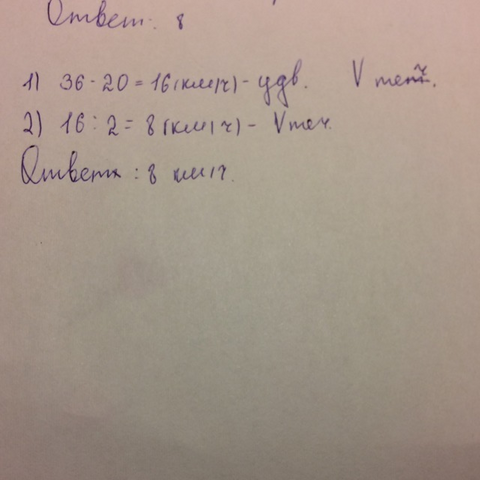 Ответ: 8
1) 36 - 20 = 16 (км/ч) - удв. V теч.
2) 16 : 2 = 8 (км/ч) - Vтеч.
Ответ: 8 км/ч.